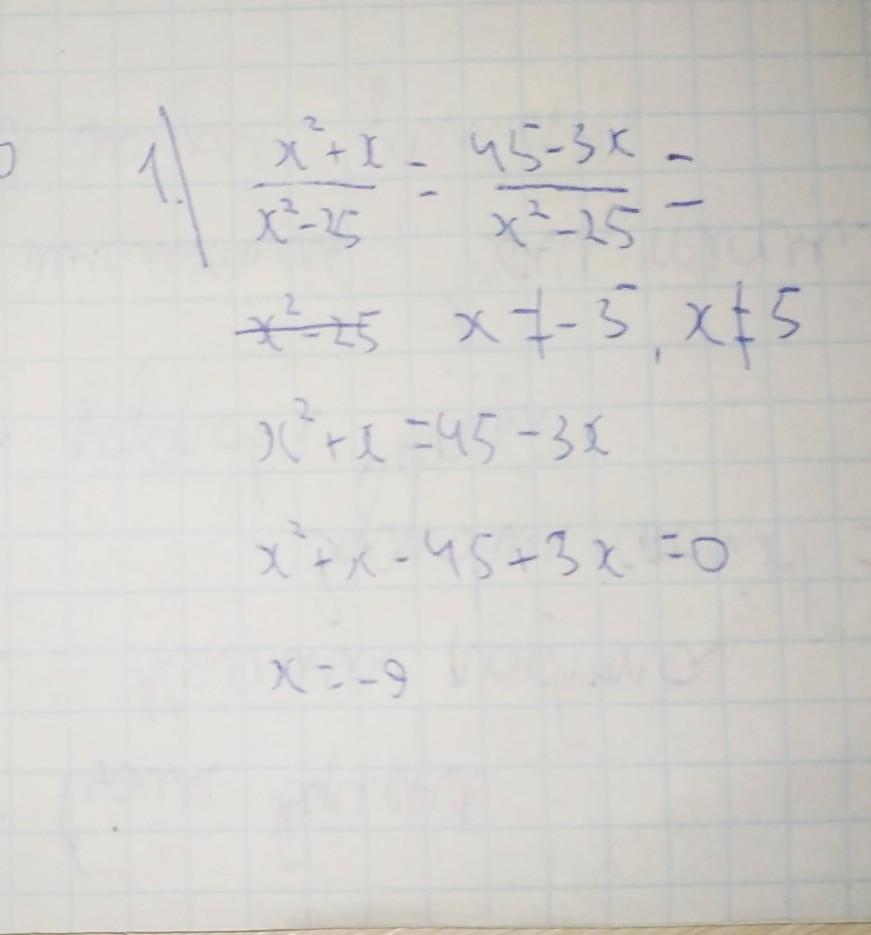 1.) (x²+x)/(x²-25) = (45-3x)/(x²-25) =
x²-25 x≠-5, x≠5
x²+x=45-3x
x²+x-45+3x=0
x=-9